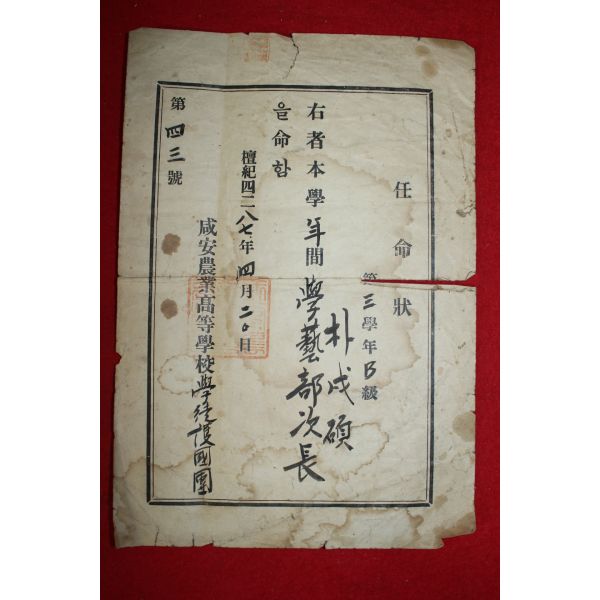 任命狀
第三學年B級
朴戊碩
右者本學年間學藝部次長
을命함
檀紀四二八七年四月二〇日
咸安農業高等學校學徒護國團
第四三號